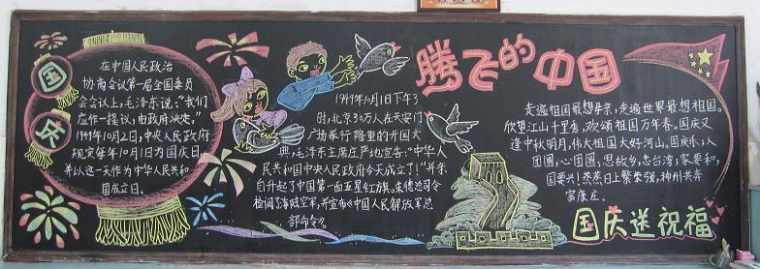 国
庆
在中国人民政治
协商会议第一届全国委员
会会议上,毛泽东说:"我们
应作一提议,由政府决定。"
1949年10月2日,中央人民政府
规定每年10月1日为国庆日
并以这一天作为中华人民共和
国成立日。
1949年10月1日下午3
时,北京30万人在天安门
广场举行隆重的开国大
典,毛泽东主席庄严地宣告:"中华人
民共和国中央人民政府今天成立了!"并亲
自升起了中国第一面五星红旗。朱德总司令
检阅了海陆空军,并宣布《中国人民解放军总
部命令》。
腾飞的中国
走遍祖国最想北京,走遍世界最想祖国。
欣望江山千里秀,欢颂祖国万年春。国庆又
逢中秋明月,伟大祖国大好河山。国庆乐,人
团圆,心团圆,思故乡,念台湾,家要和,
国要兴!蒸蒸日上繁荣强,神州共奔
富康庄。
国庆送祝福